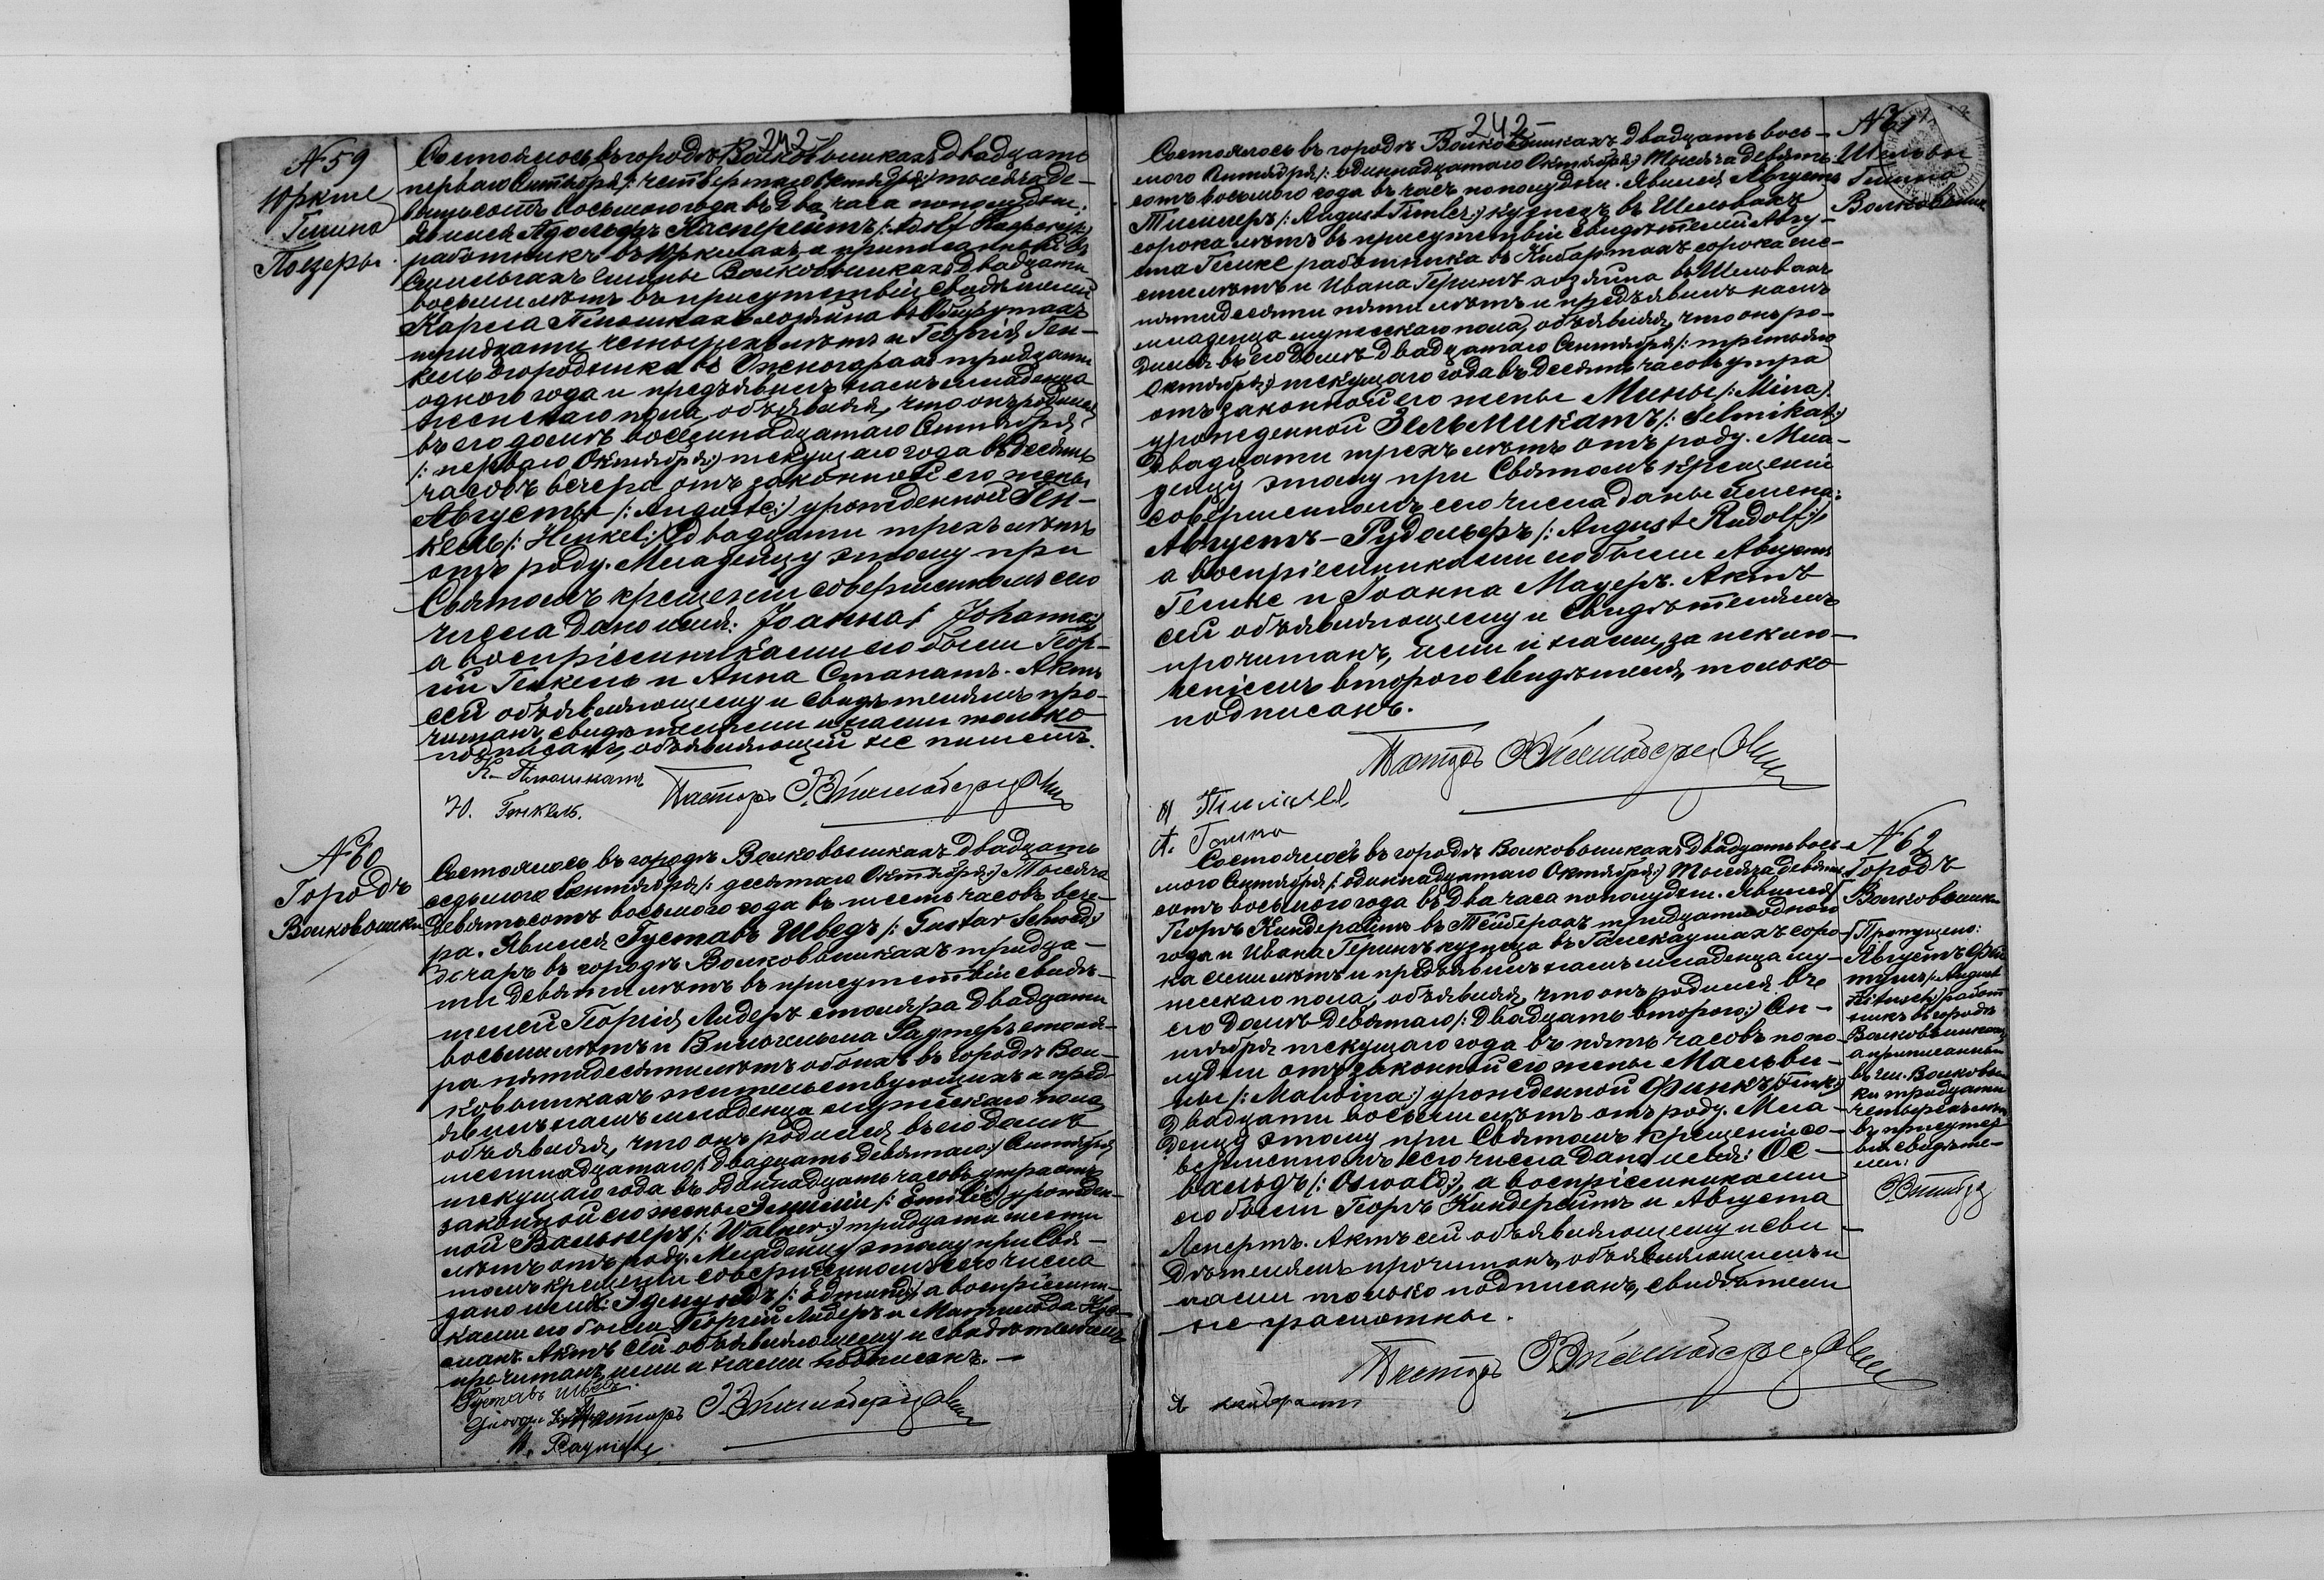 242
№ 59
Юркше
Гмина
Поезеры.
Состоялось въ городѣ Волковышкахъ двадцать
перваго Сентября /: четвертаго Октября :/ тысяча де-
вятьсотъ восьмого года въ два часа пополудни.
Явился Адольфъ Касперейтъ /: Adolf
работникъ въ Юркшахъ а приписанный въ
гмины Волковышкахъ двадцати
восьми лѣтъ въ присутствіи свидѣтелей
Карла хозяина въ
тридцати четырехъ лѣтъ и Георгія Ген-
кель огородника въ Ожногорахъ тридцати
одного года и предъявилъ намъ младенца
женскаго пола, объявляя, что онъ родился
въ его домѣ восемнадцатаго Сентября
/: перваго Октября :/ текущаго года въ десять
часовъ вечера отъ законной его жены
Августы /: Auguste :/ урожденной Ген-
кель /: Henkel :/ двадцати трехъ лѣтъ
отъ роду. Младенцу этому при
Святомъ крещеніи совершенномъ сего
числа дано имя: Іоанна /: Johanna :/
а воспріемниками его были Геор-
гій Генкель и Анна Станатъ. Актъ
сей объявляющему и свидѣтелямъ про-
читанъ, свидѣтелями и нами только
подписанъ, объявляющій не пишетъ.
К. Плюшкатъ
Ю. Генкель.
Пасторъ
№ 60
Городъ
Волковышки
Состоялось въ городѣ Волковышкахъ двадцать
седьмого Сентября /: десятаго Октября :/ Тысяча
девятьсотъ восьмого года въ шесть часовъ вече-
ра. Явился Густавъ Шведъ /: Gustav Schwed :/
въ городѣ Волковышкахъ тридца-
ти девяти лѣтъ въ присутствіи свидѣ-
телей Георгія Лидеръ столяра двадцати
восьми лѣтъ и Вильгельма Раутеръ столя-
ра пятидесяти лѣтъ обоихъ въ городѣ Вол-
ковышкахъ жительствующихъ и предъ-
явилъ намъ младенца мужескаго пола
объявляя, что онъ родился въ его домѣ
шестнадцатаго /: двадцать девятаго :/ Сентября
текущаго года въ одиннадцать часовъ утра отъ
законной его жены Эмиліи /: Emilie :/ урожден-
ной Вальнеръ /: Walner :/ тридцати шести
лѣтъ отъ роду. Младенцу этому при Свя-
томъ крещеніи совершенномъ сего числа
дано имя: Эдмундъ /: Edmund :/ а воспріемни-
ками его были Георгій Лидеръ и Матильда
Актъ сей объявляющему и свидѣтелямъ
прочитанъ, ими и нами подписанъ. —
Густавъ Шведъ.
Пасторъ
В. Раутеръ
242
№ 61
Шельвы
Гмина
Волковышки
Состоялось въ городѣ Волковышкахъ двадцать вось-
мого Сентября /: одиннадцатаго Октября :/ Тысяча девять-
сотъ восьмого года въ часъ пополудни. Явился Августъ
Тимлеръ /: August Timler :/ кузнецъ въ Шельвахъ
сорока лѣтъ въ присутствіи свидѣтелей Авгу-
ста Гелике работника въ Кибартахъ сорока ше-
сти лѣтъ и Ивана Герингъ хозяина въ Шельвахъ
пятидесяти пяти лѣтъ и предъявилъ намъ
младенца мужескаго пола, объявляя, что онъ ро-
дился въ его домѣ двадцатаго Сентября /: третьяго
Октября :/ текущаго года въ десять часовъ утра
отъ законной его жены Мины /: Mina :/
урожденной Зельмикатъ /: Selmikat :/
двадцати трехъ лѣтъ отъ роду. Мла-
денцу этому при Святомъ крещеніи
совершенномъ сего числа даны имена:
Августъ-Рудольфъ /: August Rudolf :/,
а воспріемниками его были Августъ
Гелике и Іоанна Мауеръ. Актъ
сей объявляющему и свидѣтелямъ
прочитанъ, ими и нами, за исклю-
ченіемъ второго свидѣтеля, только
подписанъ.
Пасторъ
№ 62
Городъ
Волковышки
Состоялось въ городѣ Волковышкахъ двадцать вось-
мого Сентября /: одиннадцатаго Октября :/ Тысяча девять-
сотъ восьмого года въ два часа пополудни. Явился
Георгъ Киндерейтъ въ тридцати одного
года и Ивана Герингъ кузнеца въ соро-
ка семи лѣтъ и предъявилъ намъ младенца му-
жескаго пола, объявляя, что онъ родился въ
его домѣ девятаго /: двадцать второго :/ Сен-
тября текущаго года въ пять часовъ попо-
лудни отъ законной его жены Мальви-
ны /: Malwina :/ урожденной Финкъ /: Fink :/
двадцати восьми лѣтъ отъ роду. Мла-
денцу этому при Святомъ крещеніи со-
вершенномъ сего числа дано имя: Ос-
вальдъ /: Oswald :/, а воспріемниками
его были Георгъ Киндерейтъ и Августа
Леперть. Актъ сей объявляющему и сви-
дѣтелямъ прочитанъ, объявляющимъ и
нами только подписанъ, свидѣтели
не грамотны.
Пасторъ
Пропущено:
Августъ
/: August
работ-
никъ въ городѣ
Волковышкахъ
а приписанный
въ гм. Волковыш-
ки тридцати
четырехъ лѣтъ
въ присутст-
віи свидѣте-
лей: